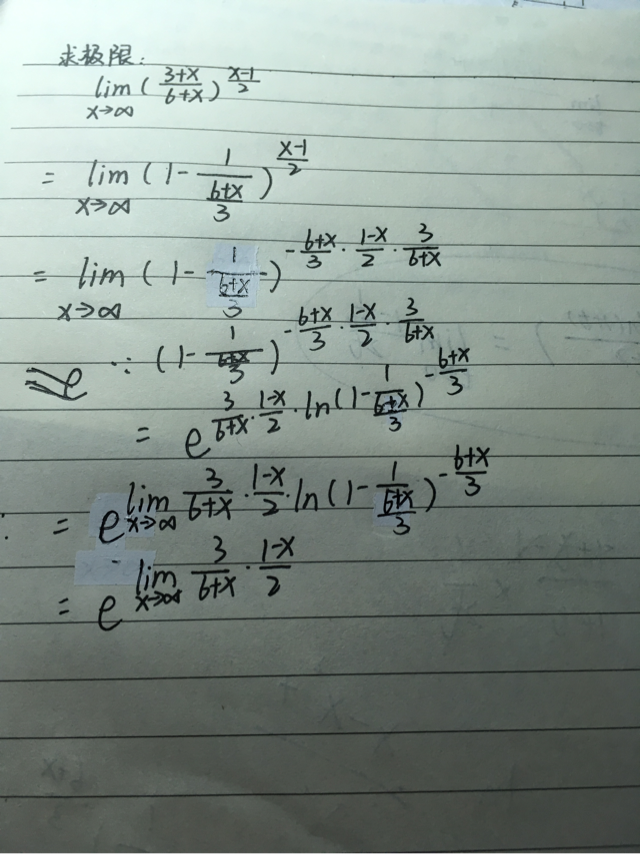 求极限:
lim x→∞ (3+x/6+x)^(x-1/2)
= lim x→∞ (1 - 1/(6+x/3))^(x-1/2)
= lim x→∞ (1 - 1/(6+x/3))^(-6+x/3 · 1-x/2 · 3/6+x)
∵ (1 - 1/(6+x/3))^(-6+x/3 · 1-x/2 · 3/6+x)
= e^(3/6+x · 1-x/2 · ln(1 - 1/(6+x/3))^(-6+x/3))
∴ = e^(lim x→∞ 3/6+x · 1-x/2 · ln(1 - 1/(6+x/3))^(-6+x/3))
= e^(lim x→∞ 3/6+x · 1-x/2)